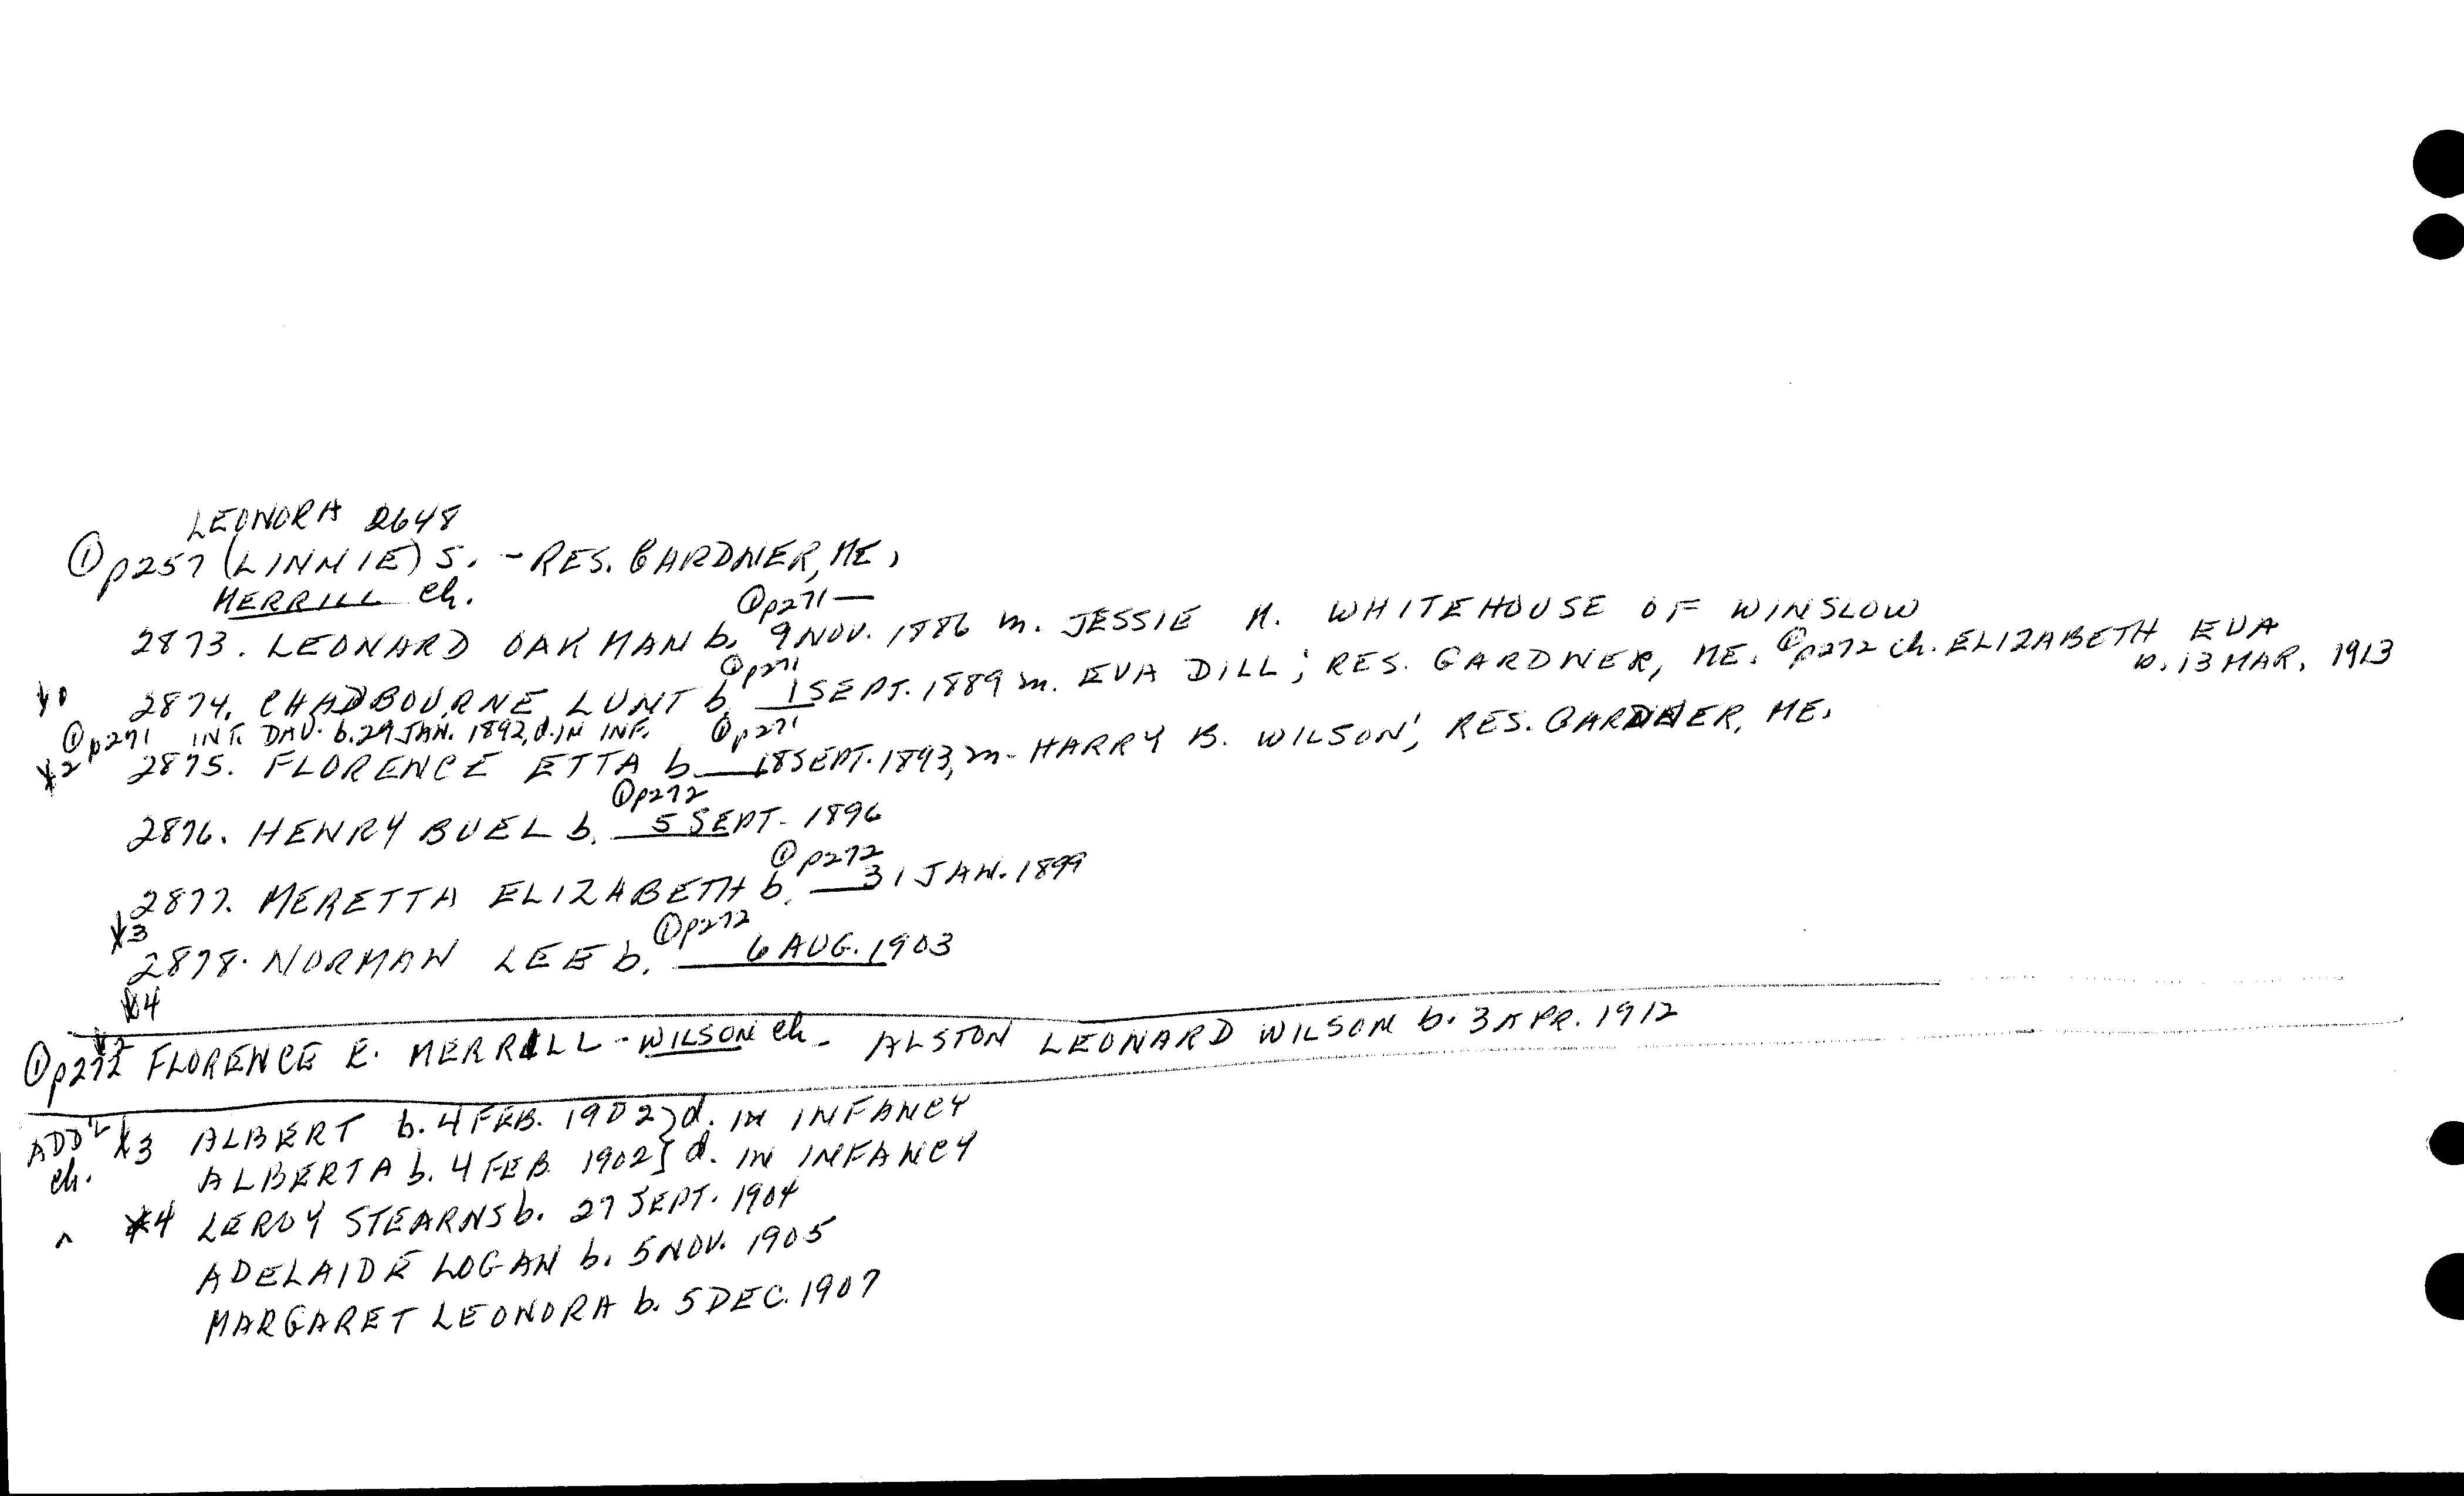 LEONORA 2648
① p257 (LINNIE) S. - RES. GARDNER, ME,
MERRILL ch.
① p271 —
2873. LEONARD OAKMAN b. 9 NOV. 1886 m. JESSIE M. WHITEHOUSE OF WINSLOW
① p271
2874. CHADBOURNE LUNT b. 1 SEPT. 1889 m. EVA DILL; RES. GARDNER, ME. ① p272 ch. ELIZABETH EVA
b. 13 MAR. 1913
① p271 INT. DAU. b. 29 JAN. 1892, d. IN INF. ① p271
*2 2875. FLORENCE ETTA b. 18 SEPT. 1893, m. HARRY B. WILSON; RES. GARDNER, ME.
① p272
2876. HENRY BUEL b. 5 SEPT. 1896
① p272
2877. MERETTA ELIZABETH b. 31 JAN. 1899
*3 ① p272
2878. NORMAN LEE b. 6 AUG. 1903
*4
*2
① p272 FLORENCE E. MERRILL - WILSON ch - ALSTON LEONARD WILSON b. 3 APR. 1912
ADD'L *3 ALBERT b. 4 FEB. 1902} d. IN INFANCY
ch. ALBERTA b. 4 FEB 1902} d. IN INFANCY
*4 LEROY STEARNS b. 27 SEPT. 1904
ADELAIDE LOGAN b. 5 NOV. 1905
MARGARET LEONORA b. 5 DEC. 1907